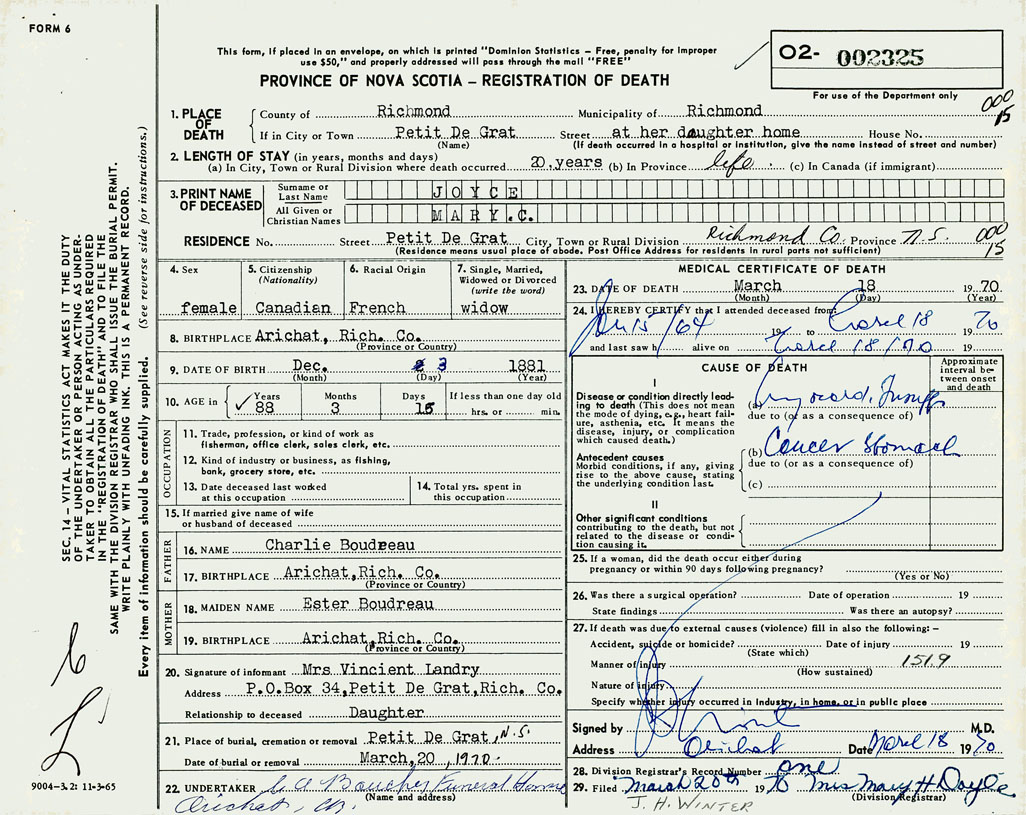 FORM 6
This form, if placed in an envelope, on which is printed "Dominion Statistics – Free, penalty for improper
use $50," and properly addressed will pass through the mail "FREE"
PROVINCE OF NOVA SCOTIA – REGISTRATION OF DEATH
02- 002325
For use of the Department only
000
15
1. PLACE OF DEATH
County of Richmond Municipality of Richmond
If in City or Town Petit De Grat Street at her daughter home House No.
(Name) (If death occurred in a hospital or institution, give the name instead of street and number)
2. LENGTH OF STAY (in years, months and days)
(a) In City, Town or Rural Division where death occurred 20 years (b) In Province life (c) In Canada (if immigrant)
3. PRINT NAME OF DECEASED
Surname or Last Name JOYCE
All Given or Christian Names MARY.C.
RESIDENCE No. Street Petit De Grat City, Town or Rural Division Richmond Co. Province N.S.
000
15
(Residence means usual place of abode. Post Office Address for residents in rural parts not sufficient)
4. Sex
female
5. Citizenship
(Nationality)
Canadian
6. Racial Origin
French
7. Single, Married,
Widowed or Divorced
(write the word)
widow
8. BIRTHPLACE Arichat, Rich. Co.
(Province or Country)
9. DATE OF BIRTH Dec. 3 1881
(Month) (Day) (Year)
10. AGE in
Years 88
Months 3
Days 15
If less than one day old
hrs. or min.
OCCUPATION
11. Trade, profession, or kind of work as
fisherman, office clerk, sales clerk, etc.
12. Kind of industry or business, as fishing,
bank, grocery store, etc.
13. Date deceased last worked
at this occupation
14. Total yrs. spent in
this occupation
15. If married give name of wife
or husband of deceased
FATHER
16. NAME Charlie Boudreau
17. BIRTHPLACE Arichat,Rich. Co.
(Province or Country)
MOTHER
18. MAIDEN NAME Ester Boudreau
19. BIRTHPLACE Arichat,Rich. Co.
(Province or Country)
20. Signature of informant Mrs Vincient Landry
Address P.O.Box 34,Petit De Grat,Rich. Co.
Relationship to deceased Daughter
21. Place of burial, cremation or removal Petit De Grat, N.S.
Date of burial or removal March,20 ,1970
22. UNDERTAKER C A Boucher Funeral Home
(Name and address)
Arichat,
MEDICAL CERTIFICATE OF DEATH
23. DATE OF DEATH March 18 1970
(Month) (Day) (Year)
24. I HEREBY CERTIFY that I attended deceased from
15/64 19 to 18 1970
and last saw h alive on 18/70 19
CAUSE OF DEATH
Approximate
interval be-
tween onset
and death
I
Disease or condition directly lead-
ing to death (This does not mean
the mode of dying, e.g., heart fail-
ure, asthenia, etc. It means the
disease, injury, or complication
which caused death.)
(a)
due to (or as a consequence of)
Antecedent causes
Morbid conditions, if any, giving
rise to the above cause, stating
the underlying condition last.
(b) Cancer Stomach
due to (or as a consequence of)
(c)
II
Other significant conditions
contributing to the death, but not
related to the disease or condi-
tion causing it.
25. If a woman, did the death occur either during
pregnancy or within 90 days following pregnancy?
(Yes or No)
26. Was there a surgical operation? Date of operation 19
State findings Was there an autopsy?
27. If death was due to external causes (violence) fill in also the following: –
Accident, suicide or homicide? Date of injury 19
(State which)
Manner of injury 1519
(How sustained)
Nature of injury
Specify whether injury occurred in industry, in home, or in public place
Signed by M.D.
Address Arichat Date March 18 1970
28. Division Registrar's Record Number one
29. Filed March 20th 1970 Miss Mary H Doyle
(Division Registrar)
J. H. WINTER
SEC. 14 – VITAL STATISTICS ACT MAKES IT THE DUTY
OF THE UNDERTAKER OR PERSON ACTING AS UNDER-
TAKER TO OBTAIN ALL THE PARTICULARS REQUIRED
IN THE "REGISTRATION OF DEATH" AND TO FILE THE
SAME WITH THE DIVISION REGISTRAR WHO SHALL ISSUE THE BURIAL PERMIT.
WRITE PLAINLY WITH UNFADING INK. THIS IS A PERMANENT RECORD.
Every item of information should be carefully supplied. (See reverse side for instructions.)
9004-3.2: 11-3-65